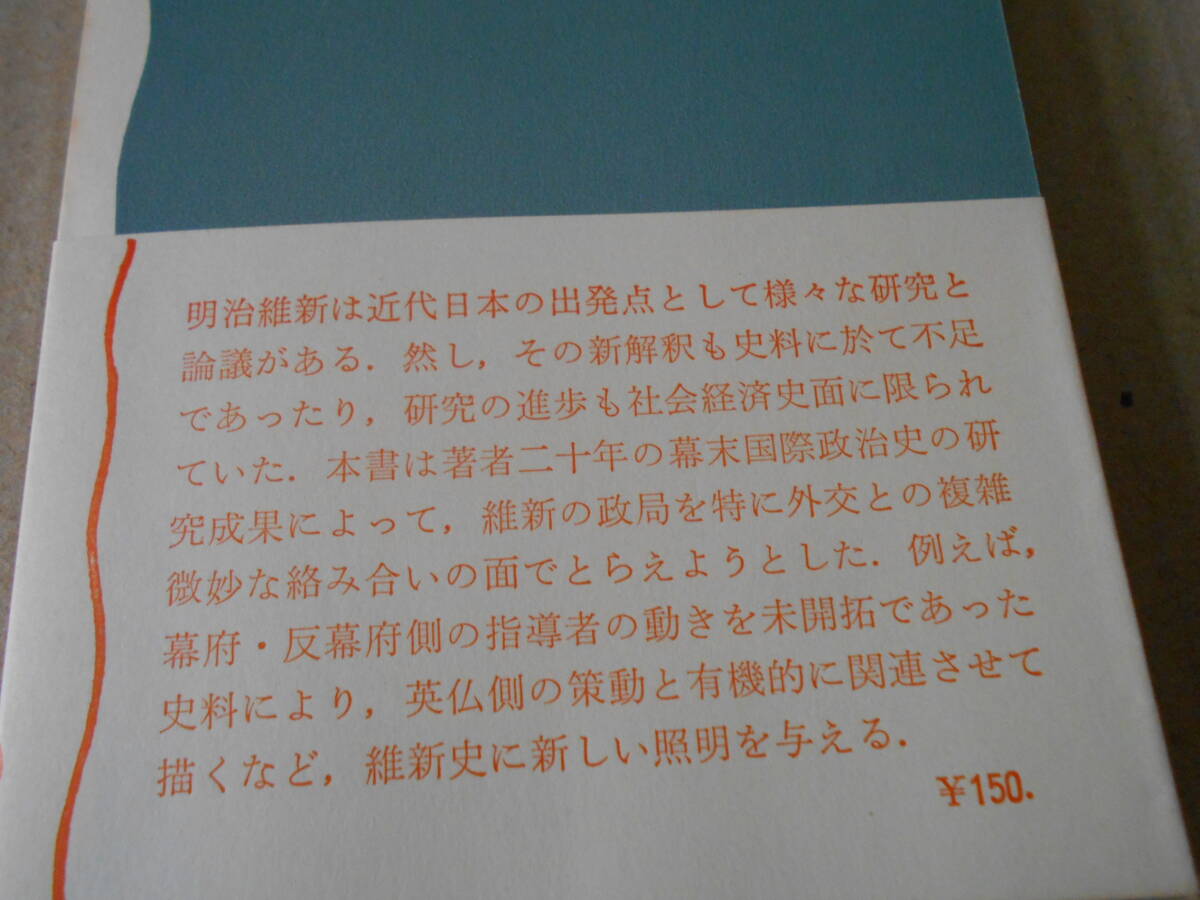 明治維新は近代日本の出発点として様々な研究と
論議がある．然し，その新解釈も史料に於て不足
であったり，研究の進歩も社会経済史面に限られ
ていた．本書は著者二十年の幕末国際政治史の研
究成果によって，維新の政局を特に外交との複雑
微妙な絡み合いの面でとらえようとした．例えば，
幕府・反幕府側の指導者の動きを未開拓であった
史料により，英仏側の策動と有機的に関連させて
描くなど，維新史に新しい照明を与える．
￥150.